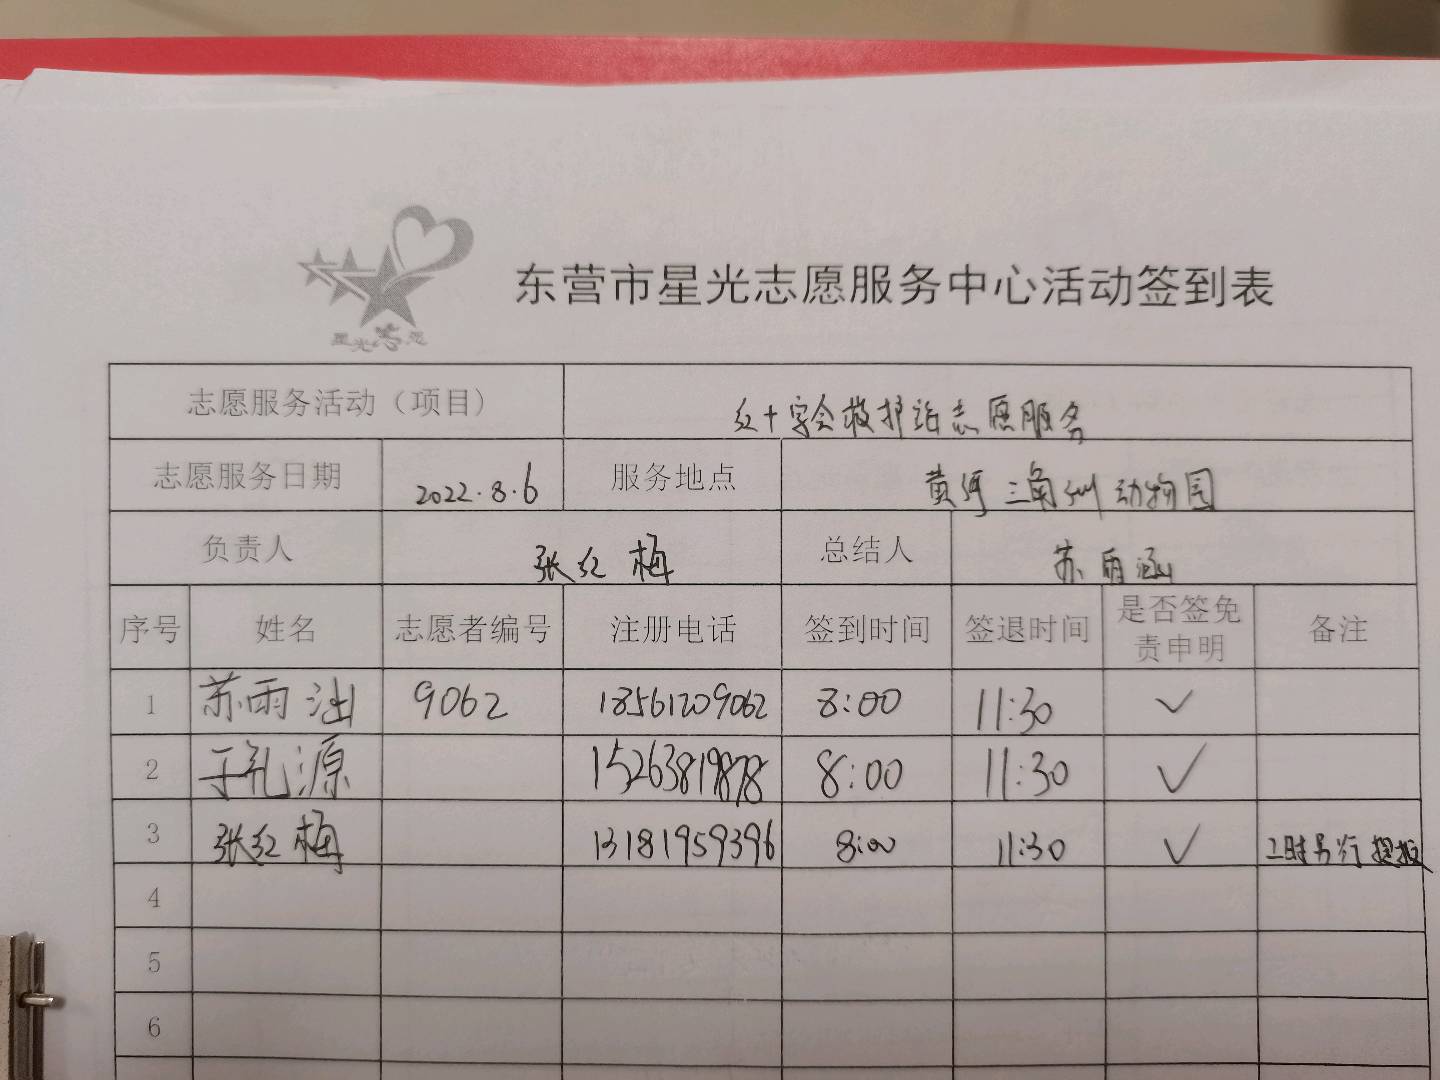 星光志愿
东营市星光志愿服务中心活动签到表
志愿服务活动（项目） 红十字会救护站志愿服务
志愿服务日期 2022.8.6 服务地点 黄河三角洲动物园
负责人 张红梅 总结人 苏雨涵
序号 姓名 志愿者编号 注册电话 签到时间 签退时间 是否签免责申明 备注
1 苏雨涵 9062 18561209062 8:00 11:30 ✓
2 于孔源 15263819878 8:00 11:30 ✓
3 张红梅 13181959396 8:00 11:30 ✓ 工时另行提报
4
5
6